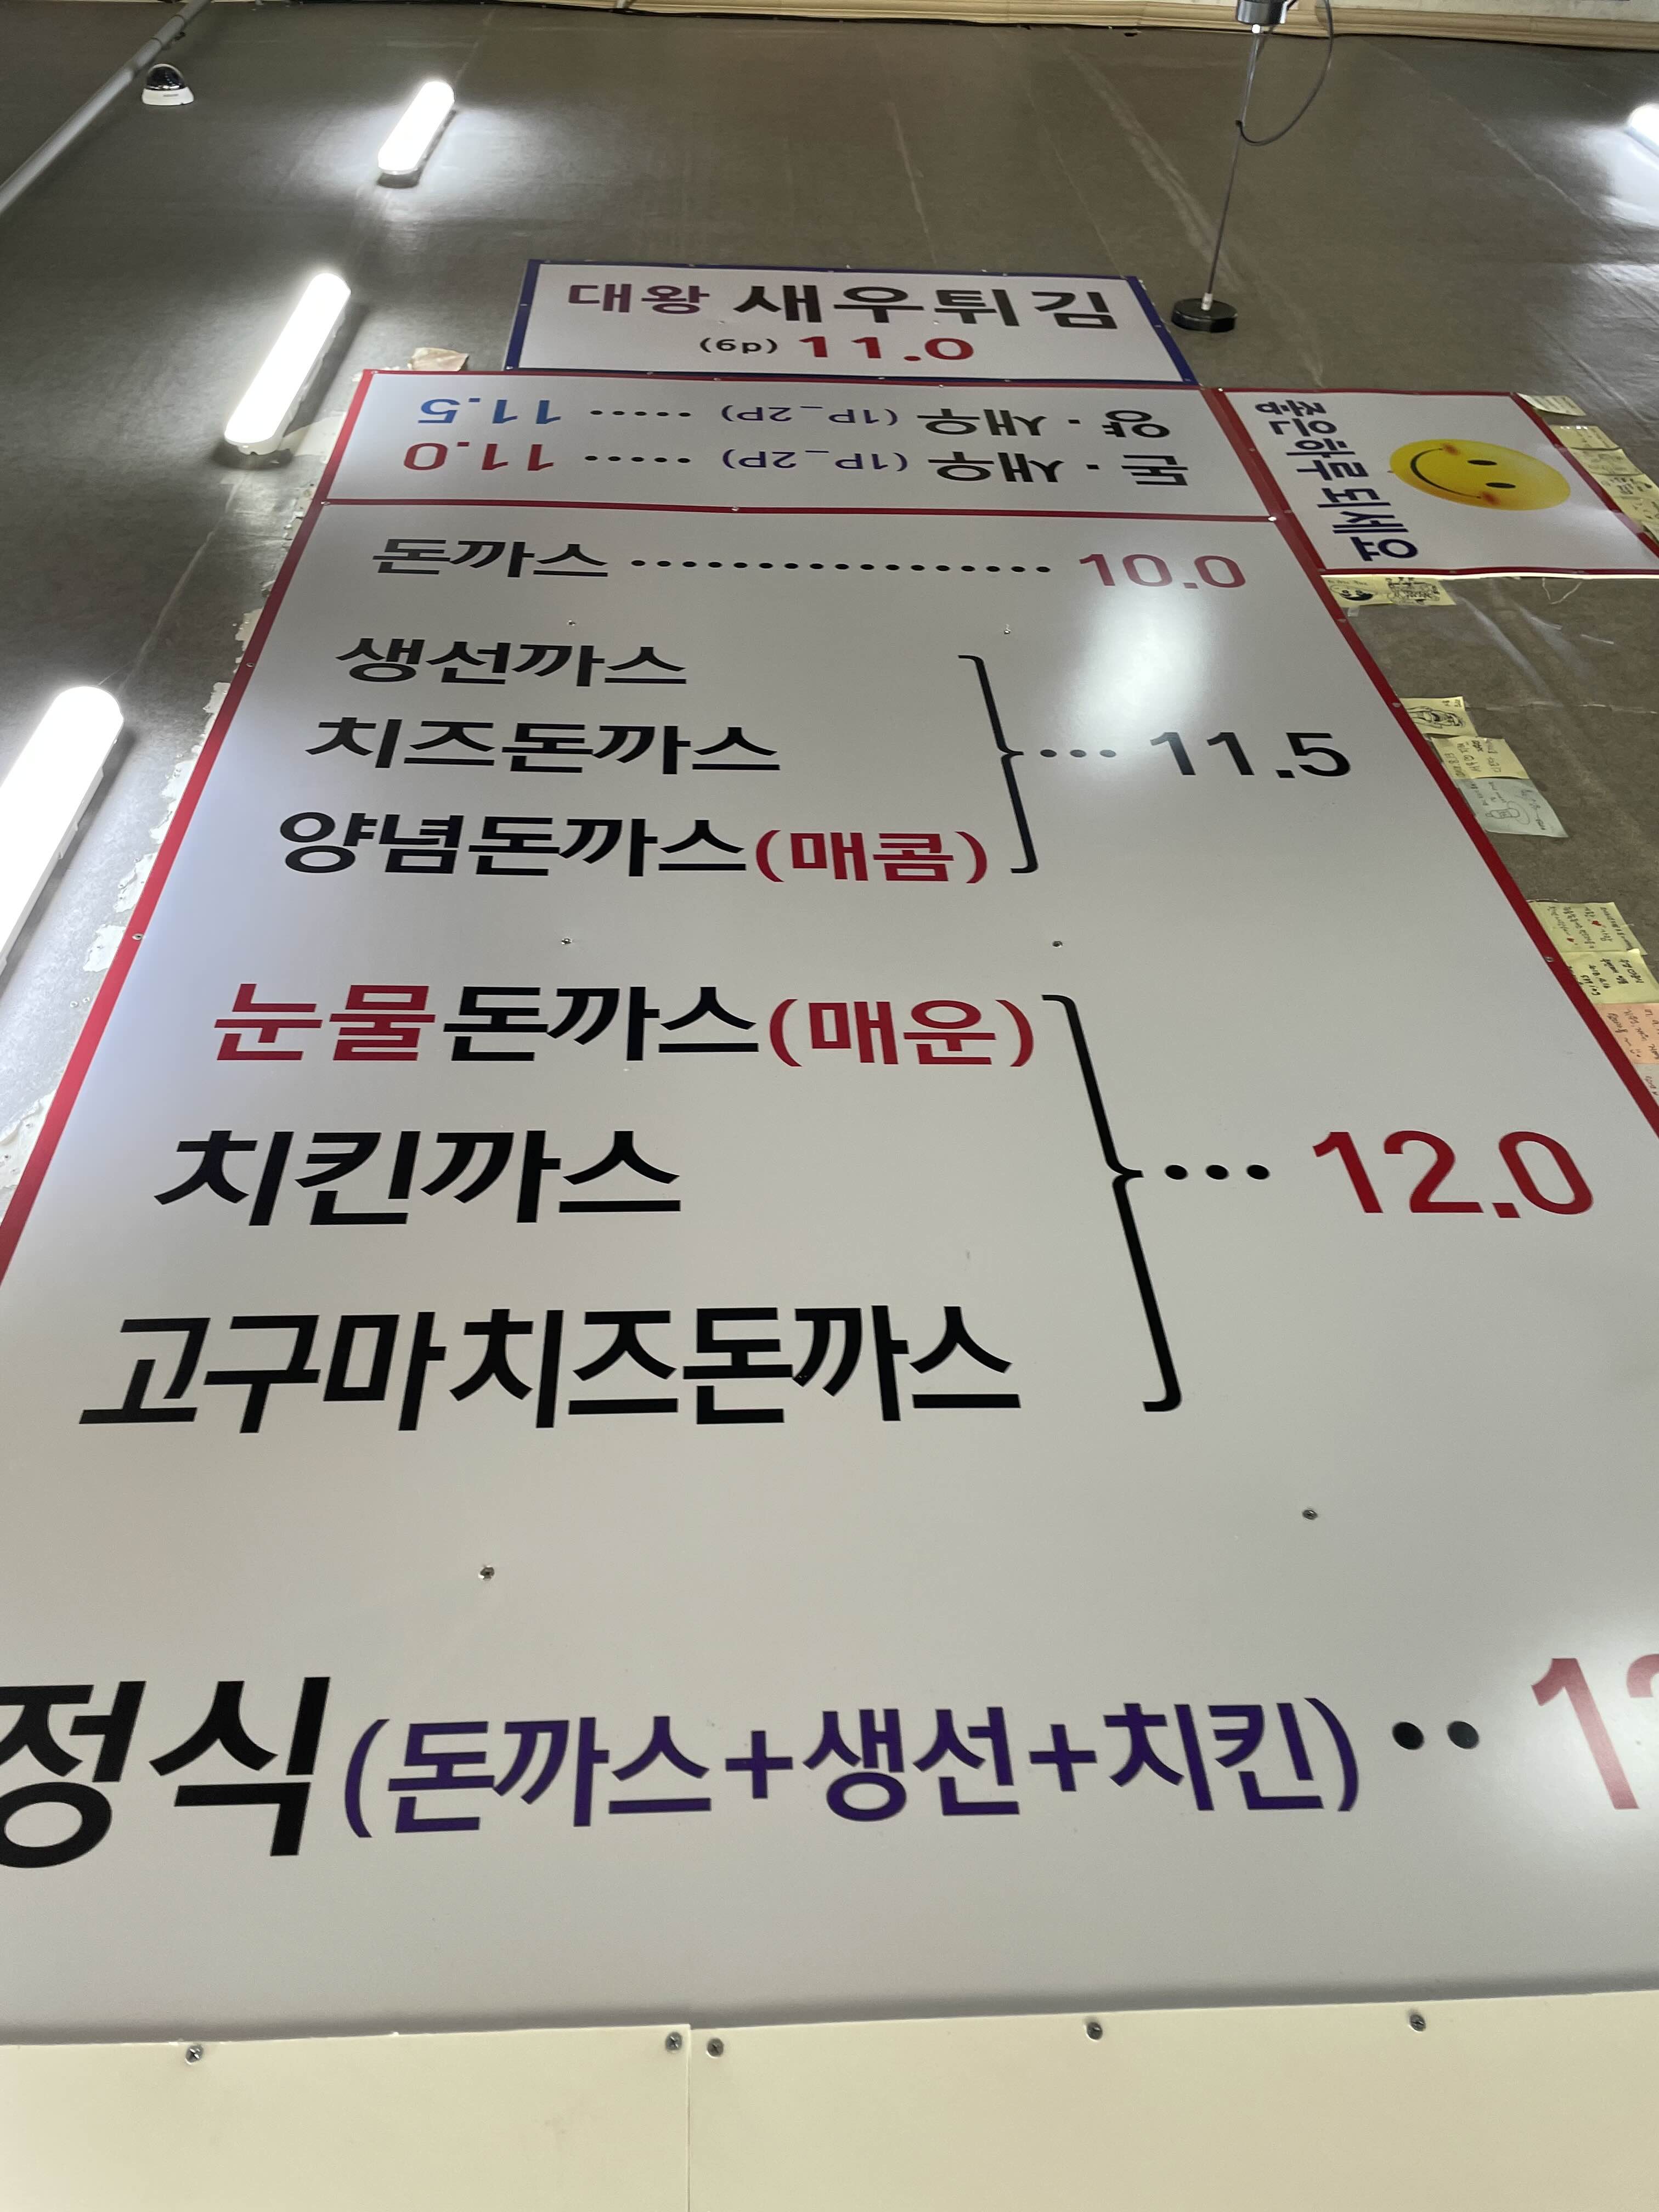 대왕 새우튀김
(6p) 11.0
돈·새우 (1P_2P) ····· 11.0
양·새우 (1P_2P) ····· 11.5
즐거운 하루 되세요
돈까스 ················· 10.0
생선까스
치즈돈까스 ··· 11.5
양념돈까스(매콤)
눈물돈까스(매운)
치킨까스 ··· 12.0
고구마치즈돈까스
정식(돈까스+생선+치킨) ··